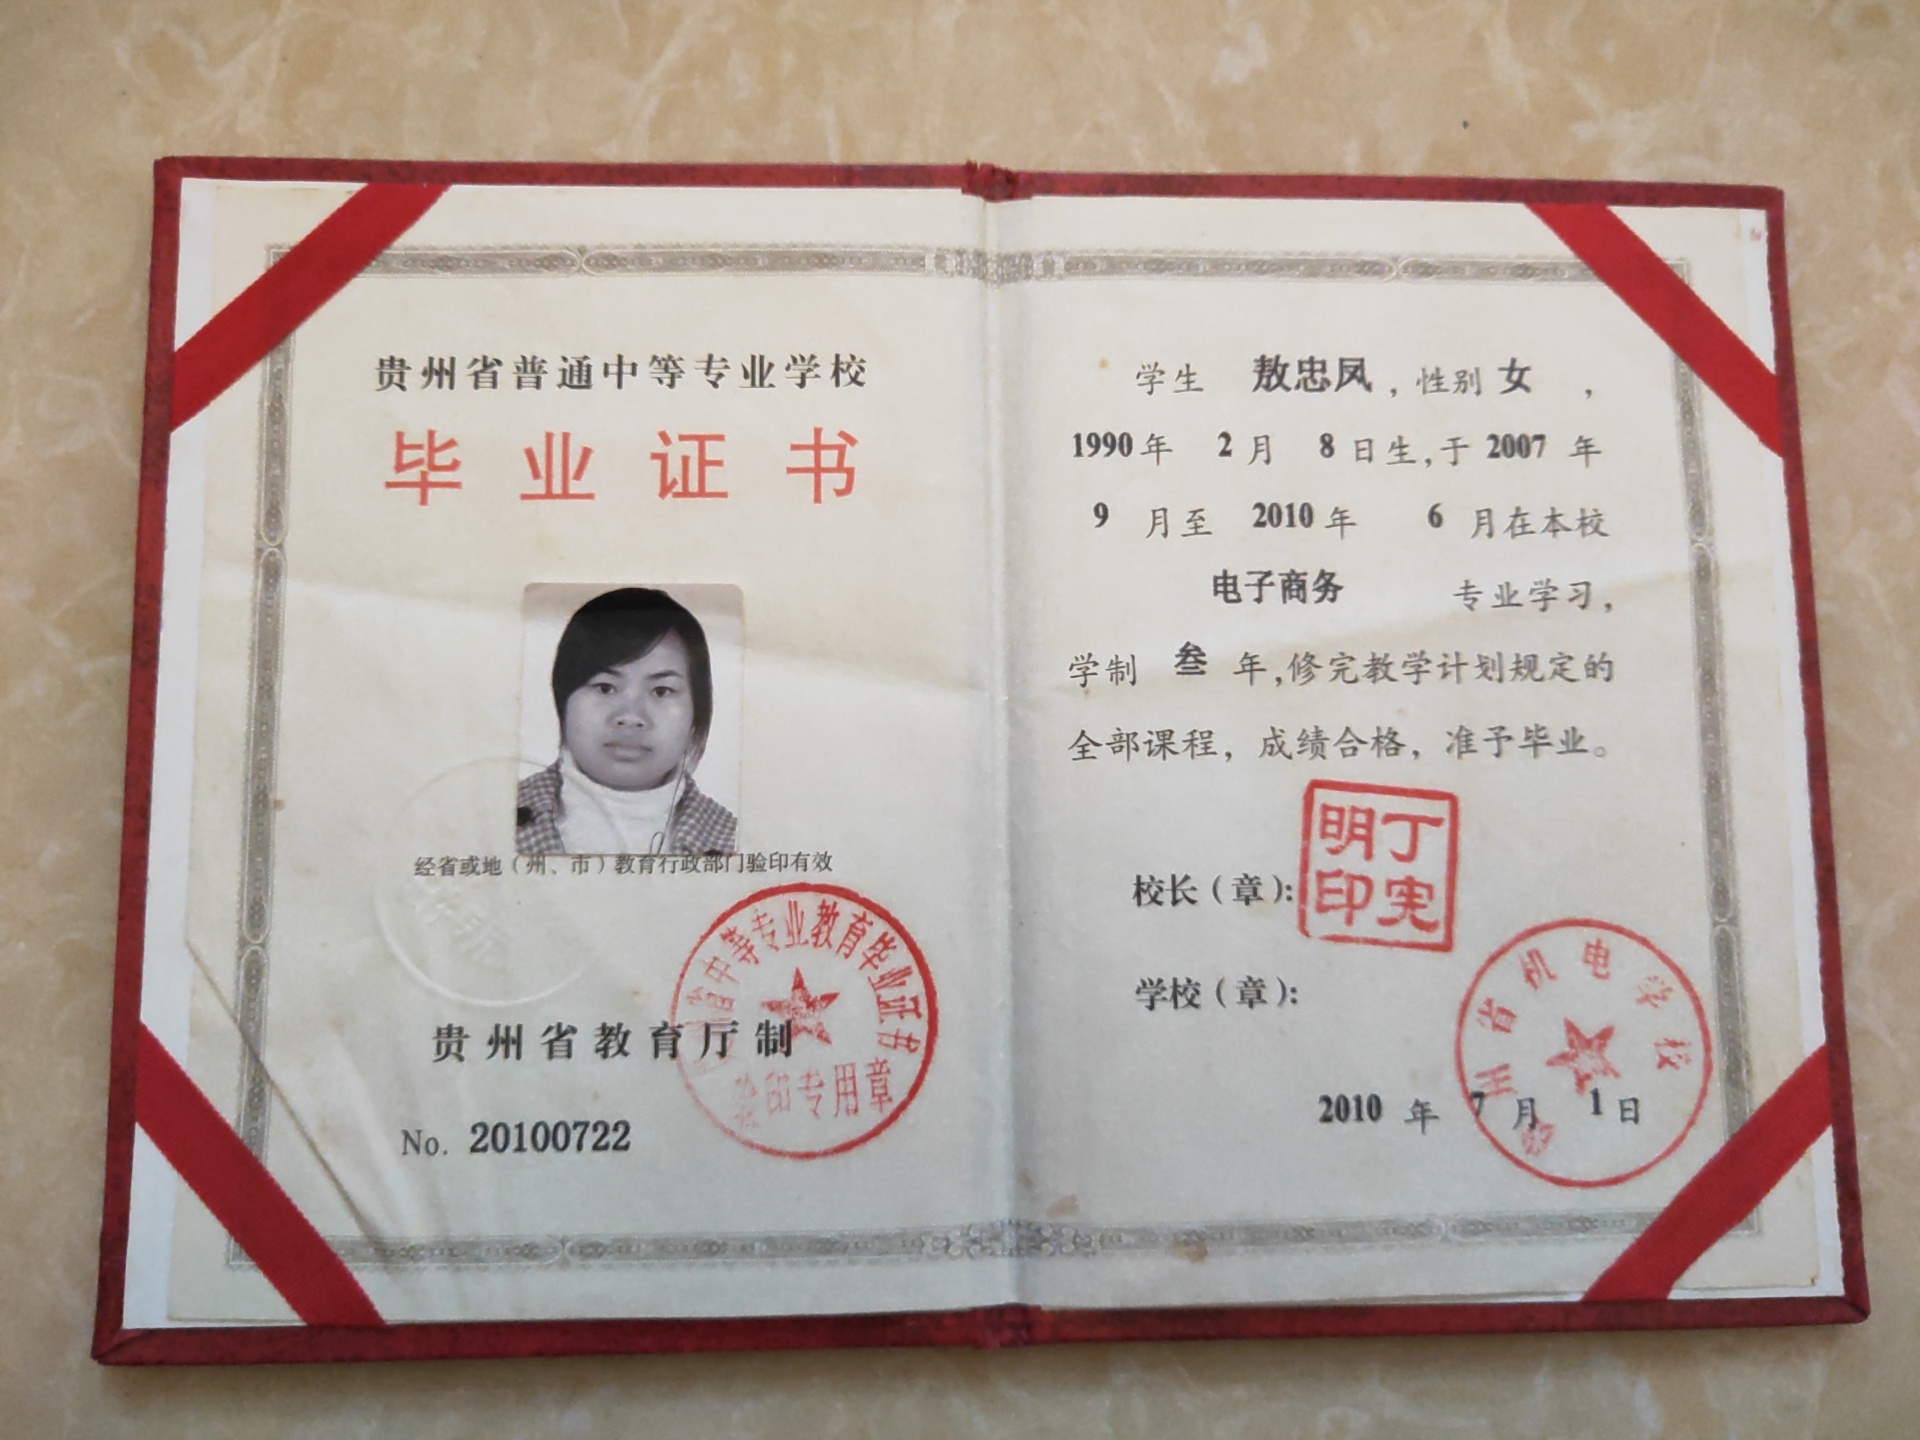 贵州省普通中等专业学校
毕业证书
经省或地（州、市）教育行政部门验印有效
省中等专业教育毕业证书
验印专用章
贵州省教育厅制
No. 20100722
学生 敖忠凤，性别 女 ，
1990年 2月 8日生，于 2007 年
9 月至 2010 年 6 月在本校
电子商务 专业学习，
学制 叁 年，修完教学计划规定的
全部课程，成绩合格，准予毕业。
校长（章）：
丁宪明印
学校（章）：
贵州省机电学校
2010 年 7 月 1 日